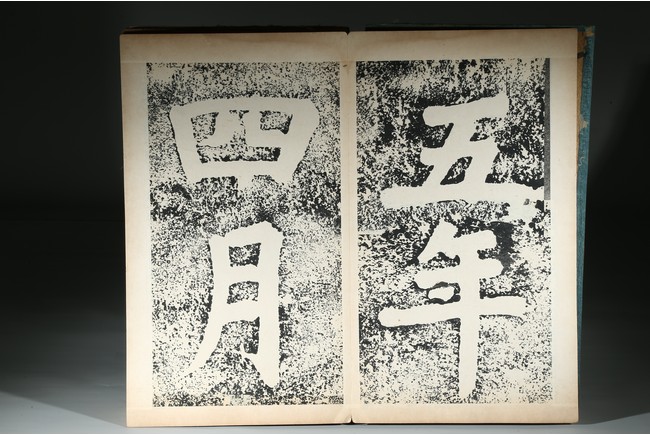 五年
四月